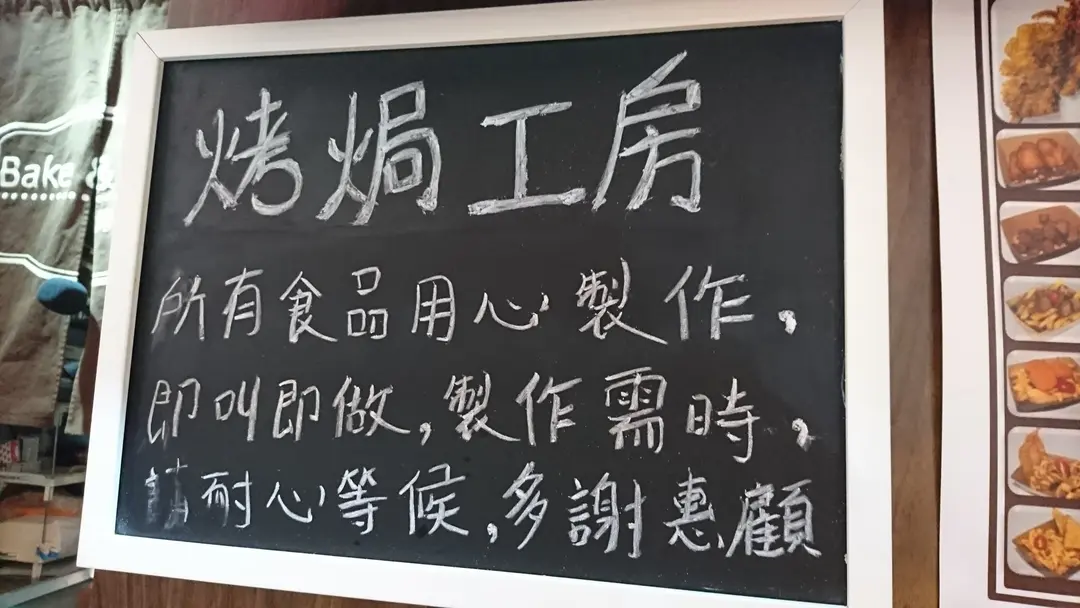 烤焗工房
所有食品用心製作，
即叫即做，製作需時，
請耐心等候，多謝惠顧
Bake &